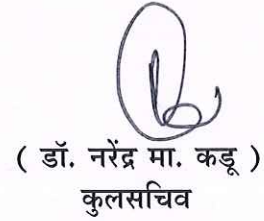 ( डॉ. नरेंद्र मा. कडू )
कुलसचिव